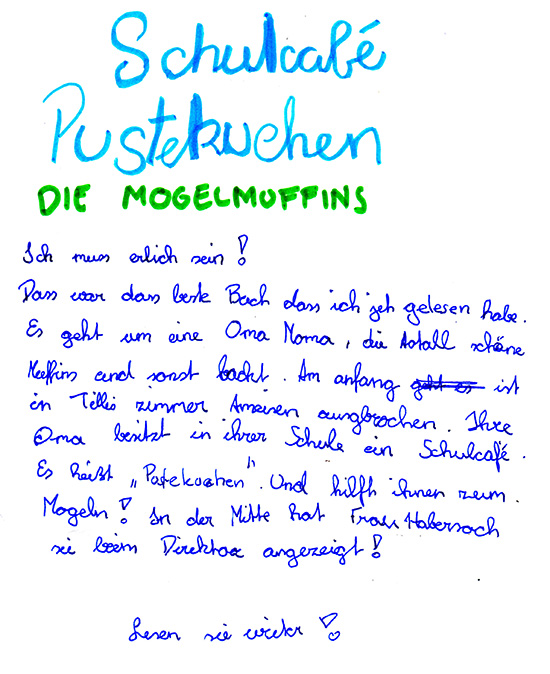 Schulcafé
Pustekuchen
DIE MOGELMUFFINS
Ich muss erlich sein!
Dass war das beste Buch dass ich jeh gelesen habe.
Es geht um eine Oma Moma, die schöne
Muffins und sonst backt. Am anfang geht es ist
in Tillis zimmer Ameisen ausgbrochen. Ihre
Oma besitzt in ihrer Schule ein Schulcafé.
Es heißt „Pustekuchen". Und hilfth ihnen zum.
Mogeln! In der Mitte hat Frau Habersack
sie beim Direktor angezeigt!
Lesen sie weiter!